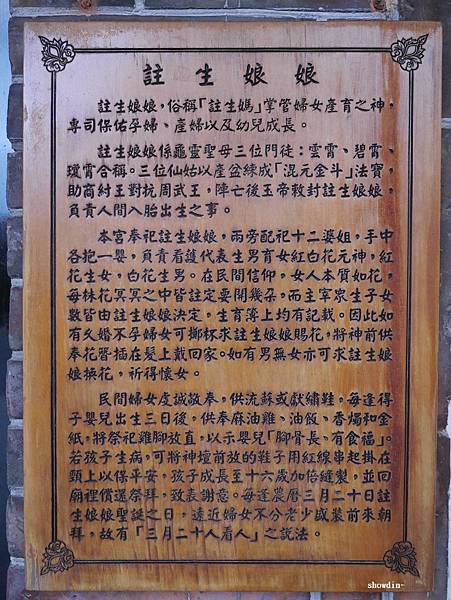 註生娘娘
註生娘娘，俗稱「註生媽」掌管婦女產育之神，
專司保佑孕婦、產婦以及幼兒成長。
註生娘娘係龜靈聖母三位門徒：雲霄、碧霄、
瓊霄合稱。三位仙姑以產盆練成「混元金斗」法寶，
助商紂王對抗周武王，陣亡後玉帝敕封註生娘娘，
負責人間入胎出生之事。
本宮奉祀註生娘娘，兩旁配祀十二婆姐，手中
各抱一嬰，負責看護代表生男育女紅白花元神，紅
花生女，白花生男。在民間信仰，女人本質如花，
每株花冥冥之中皆註定要開幾朵，而主宰眾生子女
數皆由註生娘娘決定，生育簿上均有記載。因此如
有久婚不孕婦女可擲杯求註生娘娘賜花，將神前供
奉花唇插在髮上戴回家。如有男無女亦可求註生娘
娘換花，祈得懷女。
民間婦女虔誠敬奉，供流蘇或獻繡鞋，每逢得
子嬰兒出生三日後，供奉麻油雞、油飯、香燭和金
紙，將祭祀雞腳放直，以示嬰兒「腳骨長、有食福」。
若孩子生病，可將神壇前放的鞋子用紅線串起掛在
頸上以保平安，孩子成長至十六歲加倍縫製，並回
廟裡償還祭拜，致表謝意。每逢農曆三月二十日註
生娘娘聖誕之日，遠近婦女不分老少盛裝前來朝
拜，故有「三月二十人看人」之說法。
showdin~